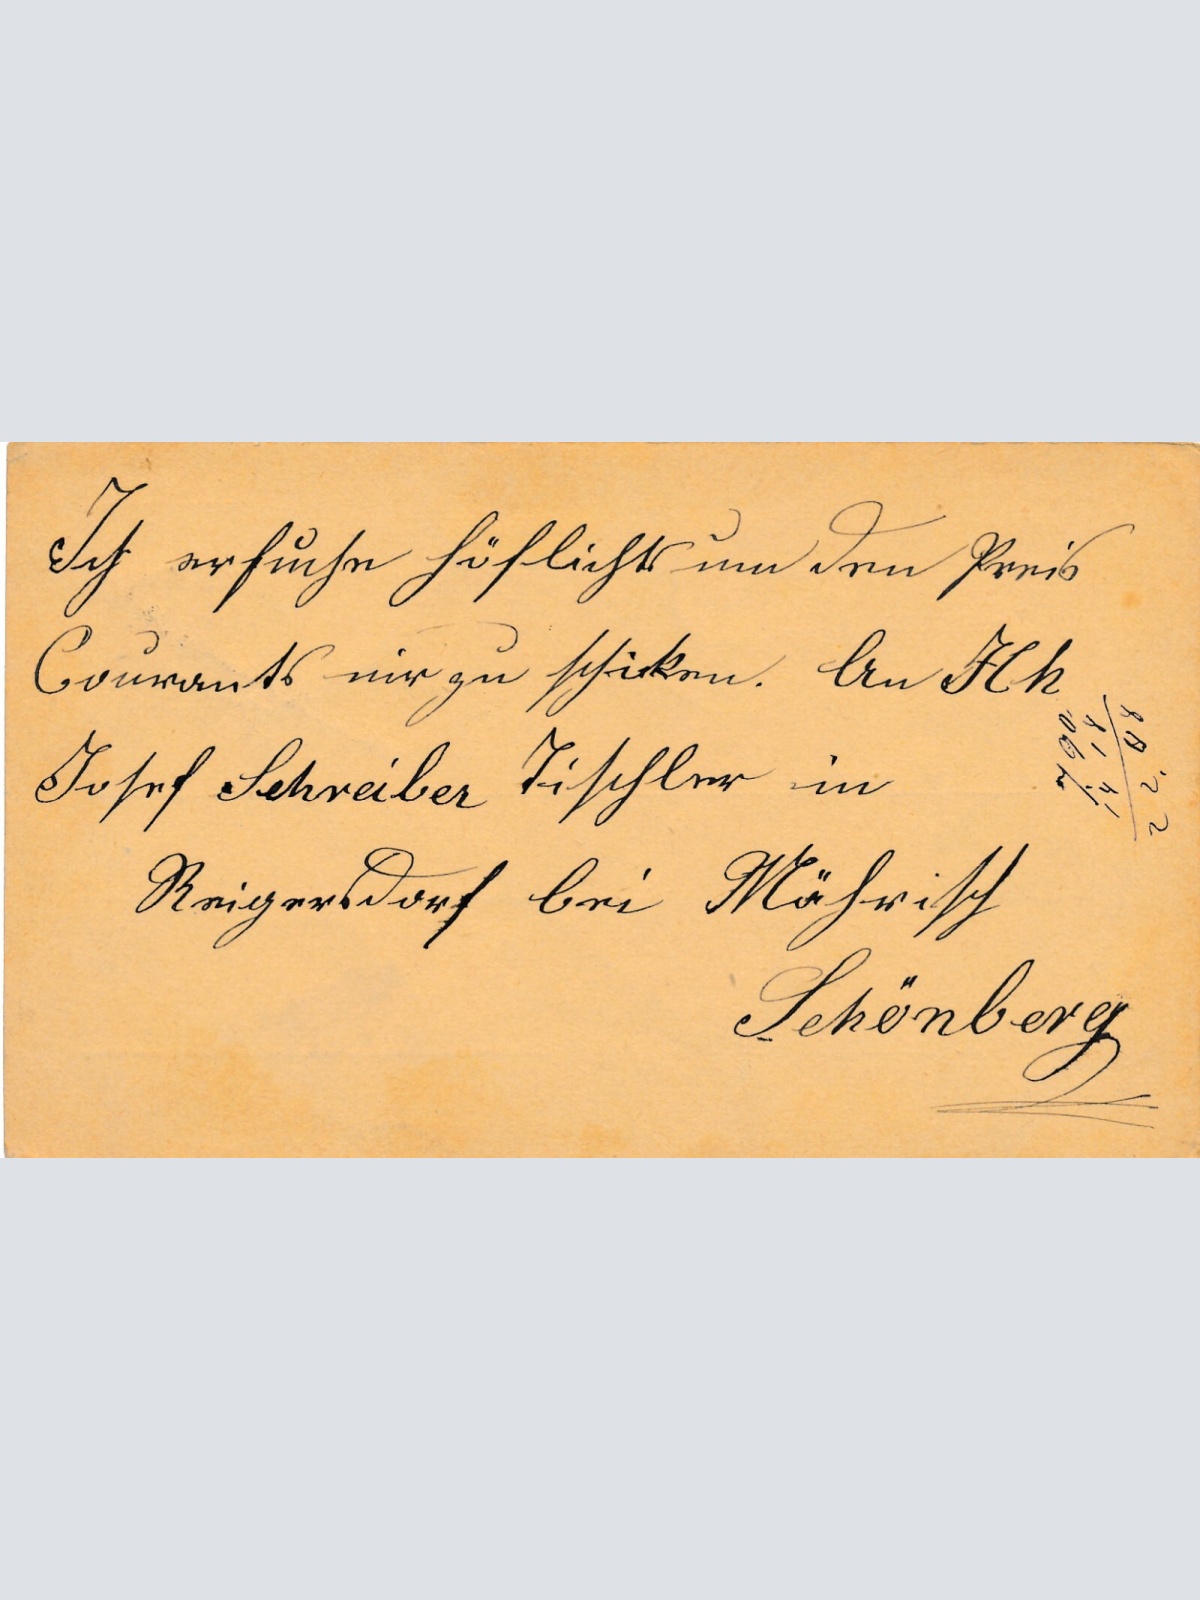 Ich ersuche höflichst um den Preis
Courants mir zu schicken. An
Josef Schreiber Tischler in
Reigersdorf bei Mährisch
Schönberg